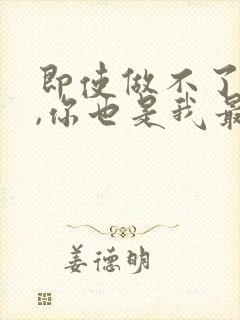 即使做不了
,你也是我最
姜德明